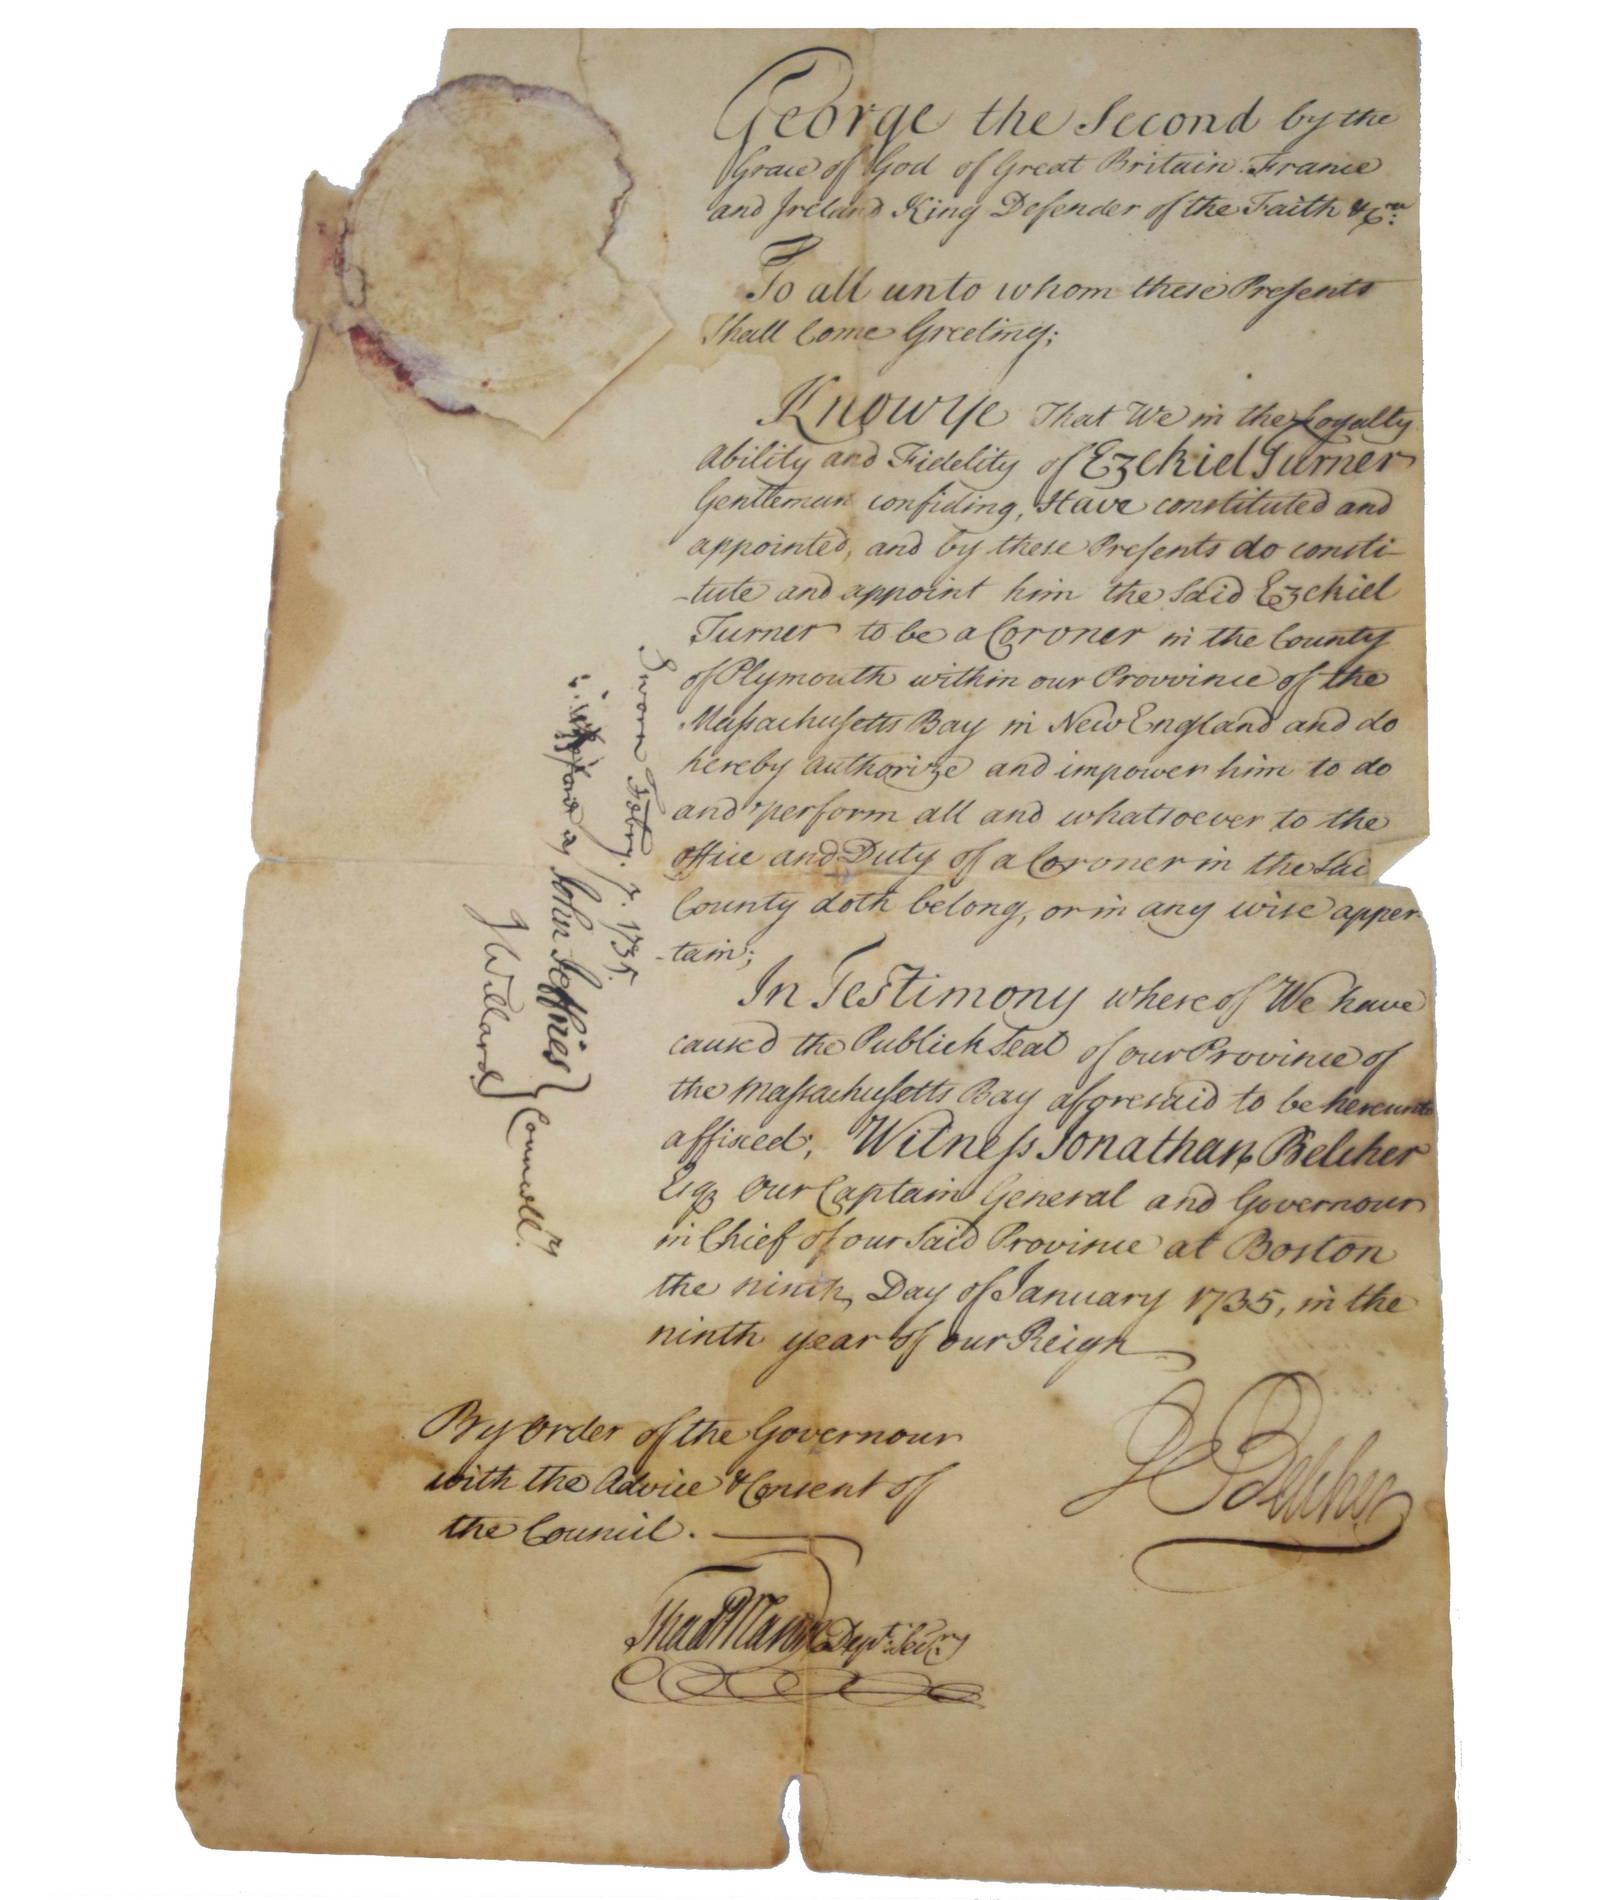 George the Second by the
Grace of God of Great Britain France
and Ireland King Defender of the Faith &c.ra
To all unto whom these Presents
Shall Come Greeting;
Know Ye That We in the Loyalty
Ability and Fidelity of Ezekiel Turner
Gentleman confiding, Have constituted and
appointed, and by these Presents do consti-
-tute and appoint him the said Ezekiel
Turner to be a Coroner in the County
of Plymouth within our Provvince of the
Massachusetts Bay in New England and do
hereby authorize and impower him to do
and perform all and whatsoever to the
office and Duty of a Coroner in the Sai
County doth belong, or in any wise apper-
-tain;
In Testimony whereof We have
caused the Publick Seal of our Province of
the Massachusetts Bay aforesaid to be hereunto
affixed; Witness Jonathan Belcher
Esqr Our Captain General and Governour
in Chief of our Said Province at Boston
the ninth Day of January 1735, in the
ninth year of our Reign
J Belcher
By Order of the Governour
with the Advice & Consent of
the Council.
Thad Mason Depty: Secry
Sworn Febry. 7. 1735.
John Jeffries
J Willard
Councellrs.